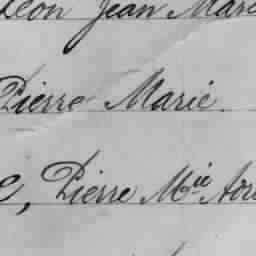 Léon Jean Marc
Pierre Marie.
e, Pierre Mie